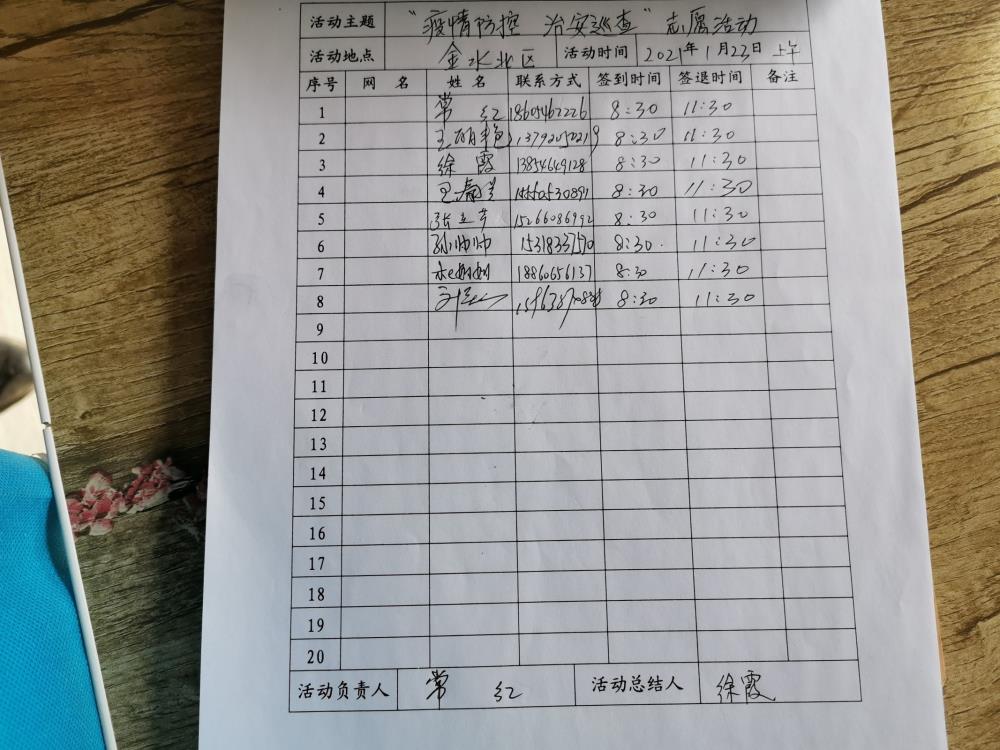 活动主题 “疫情防控 治安巡查”志愿活动
活动地点 金水北区 活动时间 2021年1月23日 上午
序号 网 名 姓 名 联系方式 签到时间 签退时间 备注
1 常 红 18605462226 8:30 11:30
2 8:30 11:30
3 徐 霞 13854649128 8:30 11:30
4 8:30 11:30
5 15266086992 8:30 11:30
6 孙帅帅 8:30 11:30
7 18860656137 8:30 11:30
8 8:30 11:30
9
10
11
12
13
14
15
16
17
18
19
20
活动负责人 常 红 活动总结人 徐霞